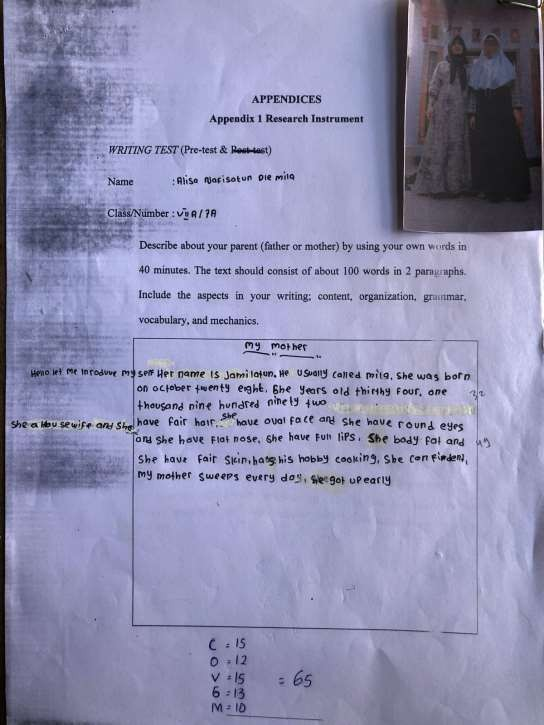 APPENDICES
Appendix 1 Research Instrument
WRITING TEST (Pre-test & Post-test)
Name : Alisa Nafisatun Dle mila
Class/Number : VII A / 7A
Describe about your parent (father or mother) by using your own words in
40 minutes. The text should consist of about 100 words in 2 paragraphs.
Include the aspects in your writing; content, organization, grammar,
vocabulary, and mechanics.
my mother
Hello let me Inroduve my self Her name Is Jamilatun. He usually called mila. she was born
on october twenty eight. She years old thirthy four, one
thousand nine hundred ninety two
32
She a Housewife and She have fair hair, she have oval face and she have round eyes
and she have flat nose. She have fun lips. She body fat and
49
she have fair skin, his hobby cooking, she confindent,
my mother sweeps every day, she got up early
C = 15
O = 12
V = 15
G = 13
M = 10
= 65